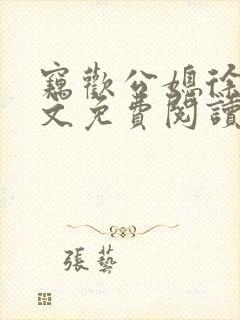 竊歡公媳徐
文免費閱讀
張藝